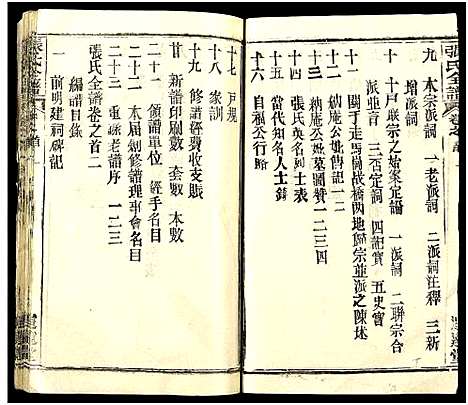 張氏全譜
九 本宗派詞 一老派詞 二派詞注釋 三新
增派詞
十 十戶联宗之始案定論 一派詞 二聯宗合
派並言 三否定詞 四記實 五史實
十一 關于走馬樹战橋两地歸宗並派之陳述
十二 納庵公妣傳記 一二
十三 納庵公妣墓圖贊 一二三四
十四 烈士芳名
十五 當代知名人士錄
十六 自福公行略
十七 戶規
十八 家訓
十九 修譜經費收支賬
廿 新譜印刷數 套數 本數
二十一 領譜單位 經手名目
二十二 本届續修譜理事會名目
二十三 重錄老譜序 一二三
張氏全譜 卷之首二
編譜目錄
一 前明建祠碑記
張氏全譜